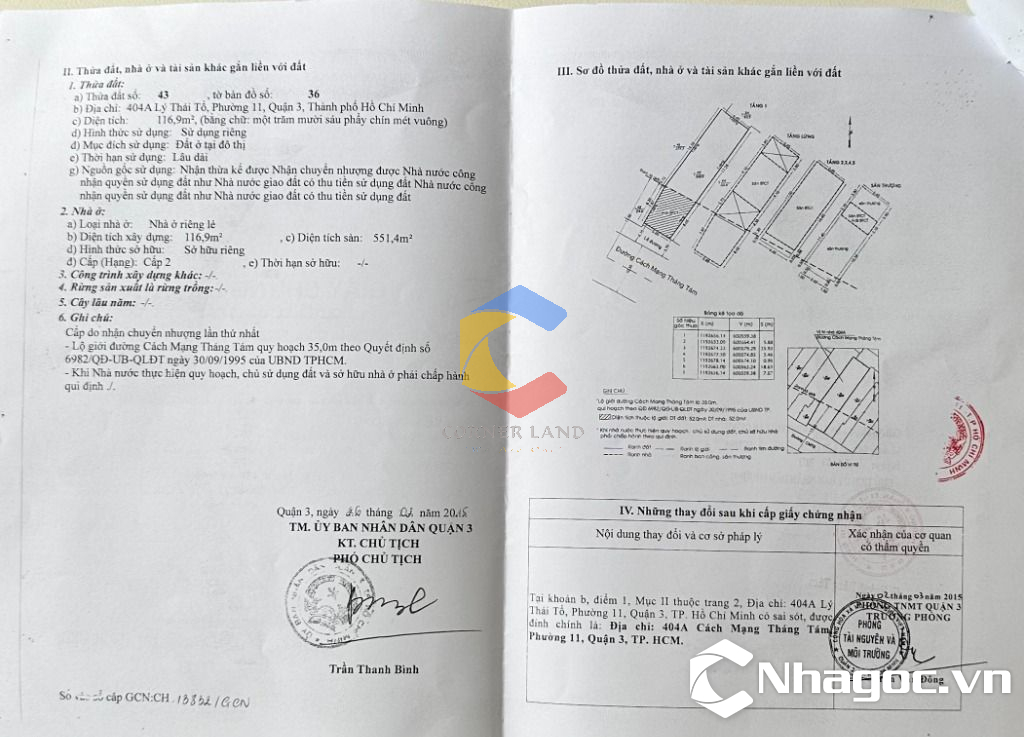 II. Thửa đất, nhà ở và tài sản khác gắn liền với đất
1. Thửa đất:
a) Thửa đất số: 43 , tờ bản đồ số: 36
b) Địa chỉ: 404A Lý Thái Tổ, Phường 11, Quận 3, Thành phố Hồ Chí Minh
c) Diện tích: 116,9m², (bằng chữ: một trăm mười sáu phẩy chín mét vuông)
d) Hình thức sử dụng: Sử dụng riêng
đ) Mục đích sử dụng: Đất ở tại đô thị
e) Thời hạn sử dụng: Lâu dài
g) Nguồn gốc sử dụng: Nhận thừa kế được Nhận chuyển nhượng được Nhà nước công
nhận quyền sử dụng đất như Nhà nước giao đất có thu tiền sử dụng đất Nhà nước công
nhận quyền sử dụng đất như Nhà nước giao đất có thu tiền sử dụng đất
2. Nhà ở:
a) Loại nhà ở: Nhà ở riêng lẻ
b) Diện tích xây dựng: 116,9m² , c) Diện tích sàn: 551,4m²
d) Hình thức sở hữu: Sở hữu riêng
đ) Cấp (Hạng): Cấp 2 , e) Thời hạn sở hữu: -/-
3. Công trình xây dựng khác: -/-
4. Rừng sản xuất là rừng trồng: -/-
5. Cây lâu năm: -/-
6. Ghi chú:
Cấp do nhận chuyển nhượng lần thứ nhất
- Lộ giới đường Cách Mạng Tháng Tám quy hoạch 35,0m theo Quyết định số
6982/QĐ-UB-QLĐT ngày 30/09/1995 của UBND TPHCM.
- Khi Nhà nước thực hiện quy hoạch, chủ sử dụng đất và sở hữu nhà ở phải chấp hành
qui định ./.
CORNER LAND
Quận 3, ngày tháng năm 2015
TM. ỦY BAN NHÂN DÂN QUẬN 3
KT. CHỦ TỊCH
PHÓ CHỦ TỊCH
Trần Thanh Bình
Số cấp GCN:CH 13832/GCN
III. Sơ đồ thửa đất, nhà ở và tài sản khác gắn liền với đất
TẦNG 1
TẦNG LỬNG
TẦNG 2,3,4,5
SÂN THƯỢNG
sân thượng
sân thượng
Lề đường
Đường Cách Mạng Tháng Tám
Bảng kê tọa độ
Số hiệu góc thửa X (m) Y (m) S (m)
BẢN ĐỒ VỊ TRÍ
GHI CHÚ:
*Lộ giới đường Cách Mạng Tháng Tám là 35.0m.
qui hoạch theo QĐ 6982/QĐ-UB-QLĐT ngày 30/09/1995 của UBND TP.
Diện tích thuộc lộ giới: DT đất: 52.0m²; DT nhà: 52.0m²
* Khi nhà nước thực hiện quy hoạch, chủ sử dụng đất, chủ sở hữu nhà
phải chấp hành theo qui định.
Ranh đất Ranh lộ giới Ranh tim đường
Ranh nhà Ranh ban công, sân thượng
T.P HỒ CHÍ MINH
IV. Những thay đổi sau khi cấp giấy chứng nhận
Nội dung thay đổi và cơ sở pháp lý
Xác nhận của cơ quan
có thẩm quyền
Tại khoản b, điểm 1, Mục II thuộc trang 2, Địa chỉ: 404A Lý
Thái Tổ, Phường 11, Quận 3, TP. Hồ Chí Minh có sai sót, được
đính chính là: Địa chỉ: 404A Cách Mạng Tháng Tám,
Phường 11, Quận 3, TP. HCM.
Ngày 02 tháng 03 năm 2015
PHÒNG TNMT QUẬN 3
TRƯỞNG PHÒNG
PHÒNG
TÀI NGUYÊN VÀ
MÔI TRƯỜNG
Đông
Nhagoc.vn